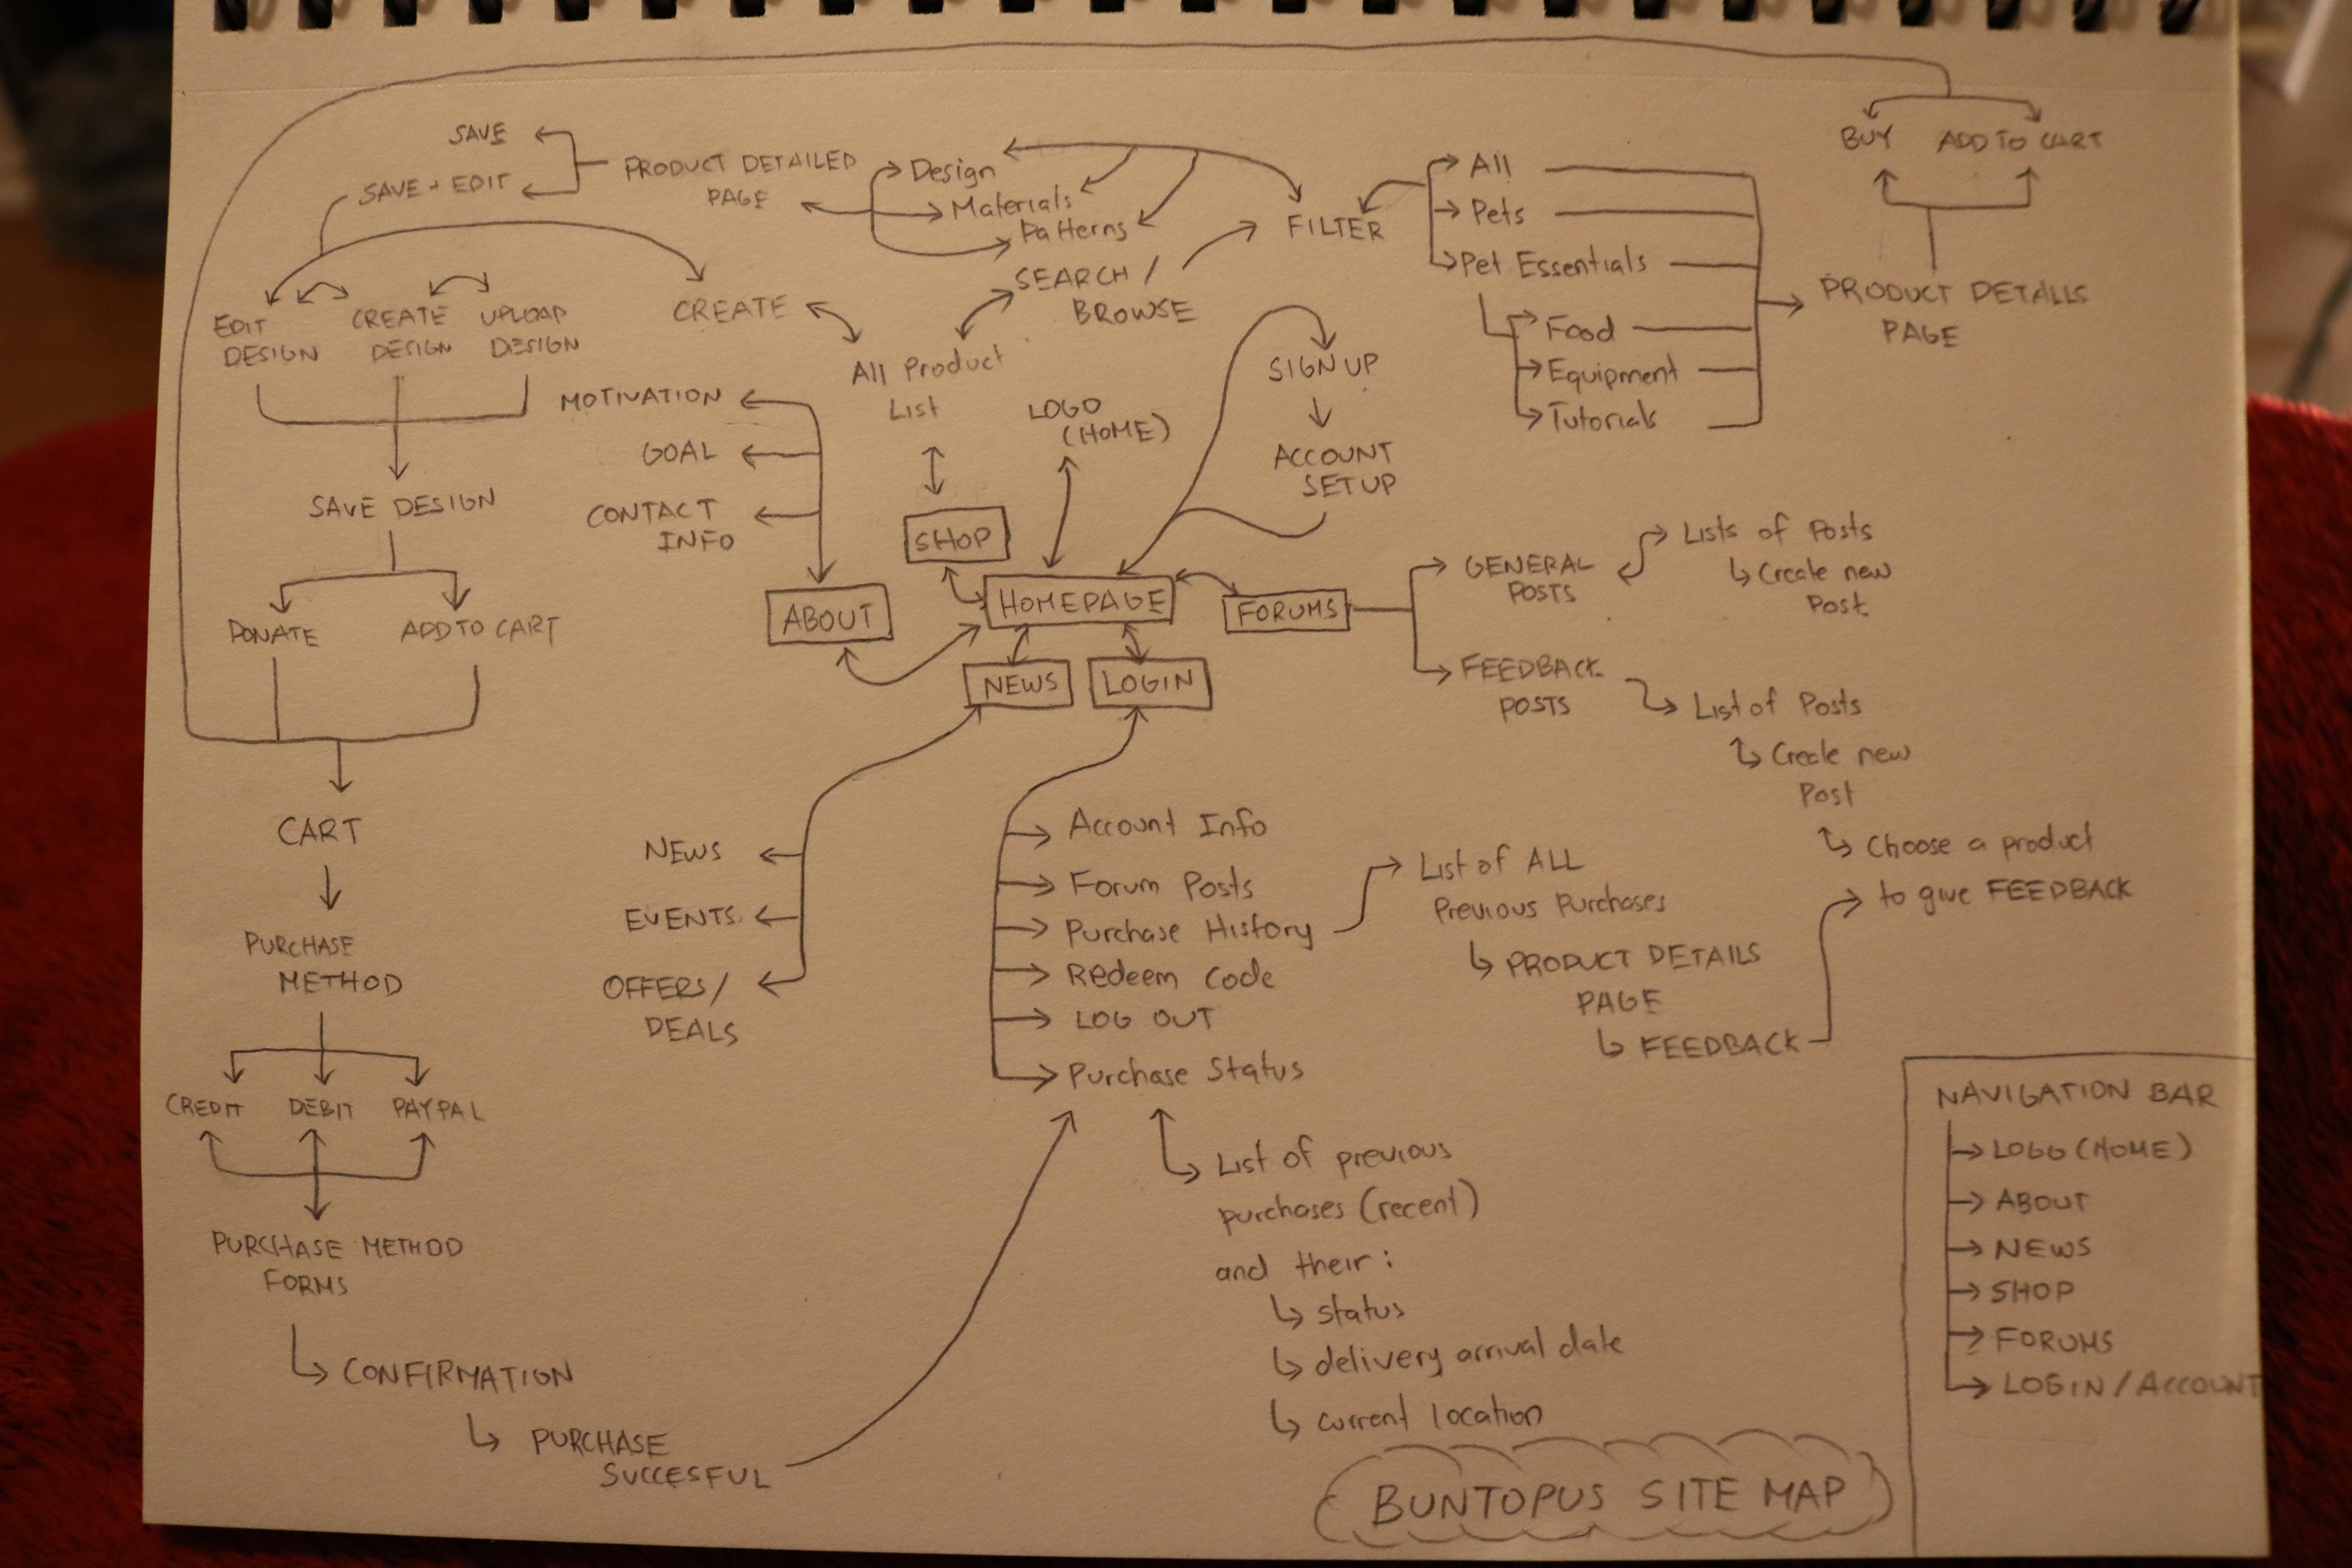 SAVE
SAVE + EDIT
PRODUCT DETAILED
PAGE
Design
Materials
Patterns
SEARCH /
BROWSE
FILTER
All
Pets
Pet Essentials
Food
Equipment
Tutorials
BUY
ADD TO CART
PRODUCT DETAILS
PAGE
EDIT
DESIGN
CREATE
DESIGN
UPLOAD
DESIGN
CREATE
All Product
List
LOGO
(HOME)
SIGN UP
ACCOUNT
SETUP
MOTIVATION
GOAL
CONTACT
INFO
SAVE DESIGN
DONATE
ADD TO CART
SHOP
ABOUT
HOMEPAGE
FORUMS
NEWS
LOGIN
GENERAL
POSTS
Lists of Posts
Create new
Post
FEEDBACK
POSTS
List of Posts
Create new
Post
Choose a product
to give FEEDBACK
CART
PURCHASE
METHOD
CREDIT
DEBIT
PAYPAL
PURCHASE METHOD
FORMS
CONFIRMATION
PURCHASE
SUCCESFUL
NEWS
EVENTS
OFFERS /
DEALS
Account Info
Forum Posts
Purchase History
Redeem Code
LOG OUT
Purchase Status
List of ALL
Previous Purchases
PRODUCT DETAILS
PAGE
FEEDBACK
List of previous
purchases (recent)
and their :
status
delivery arrival date
current location
NAVIGATION BAR
LOGO (HOME)
ABOUT
NEWS
SHOP
FORUMS
LOGIN / ACCOUNT
BUNTOPUS SITE MAP